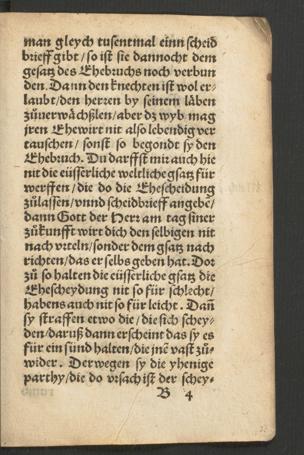 man gleych tusentmal einn scheid
brieff gibt / so ist sie dannocht dem
gesatz des Ehebruchs noch verbun
den. Dann den knechten ist wol er-
laubt / den herren by seinem läben
zůuerwächßlen / aber dz wyb mag
jren Ehewirt nit also lebendig ver
tauschen / sonst so begondt sy den
Ehebruch. Du darffst mir auch hie
nit die eüsserliche weltliche gsatz für
werffen / die do die Ehescheidung
zůlassen / vnnd scheidbrieff angebē /
dann Gott der Herr am tag siner
zůkunfft wirt dich den selbigen nit
nach vrteln / sonder dem gsatz nach
richten / das er selbs geben hat. Dor
zů so halten die eüsserliche gsatz die
Ehescheydung nit so für schlecht /
habens auch nit so für leicht. Dañ
sy straffen etwo die / die sich schey-
den / daruß dann erscheint das sy es
für ein sünd halten / die jnē vast zů-
wider. Derwegen sy die yhenige
parthy / die do vrsach ist der schey-
B 4